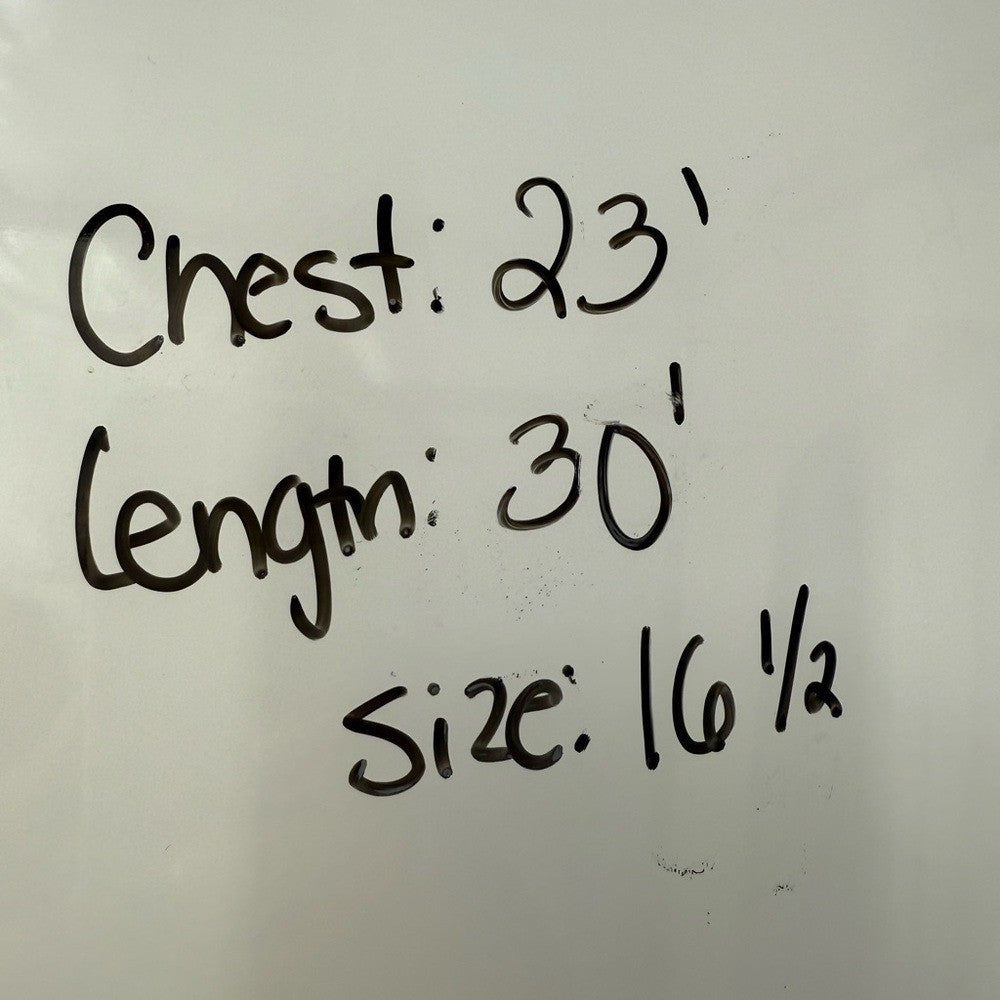 Chest: 23'
Length: 30'
Size: 16 1/2